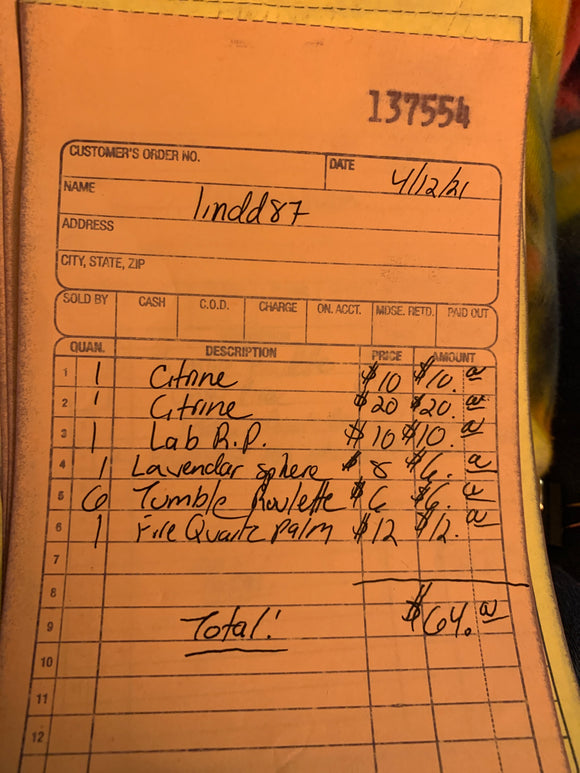 137554
CUSTOMER'S ORDER NO. DATE 4/12/21
NAME lindd87
ADDRESS
CITY, STATE, ZIP
SOLD BY CASH C.O.D. CHARGE ON. ACCT. MDSE. RETD. PAID OUT
QUAN. DESCRIPTION PRICE AMOUNT
1 1 Citrine $10 $10.00
2 1 Citrine $20 $20.00
3 1 Lab R.P. $10 $10.00
4 1 Lavendar sphere $8 $6.00
5 6 Tumble Roulette $6 $6.00
6 1 Fire Quartz palm $12 $12.00
7
8
9 Total: $64.00
10
11
12